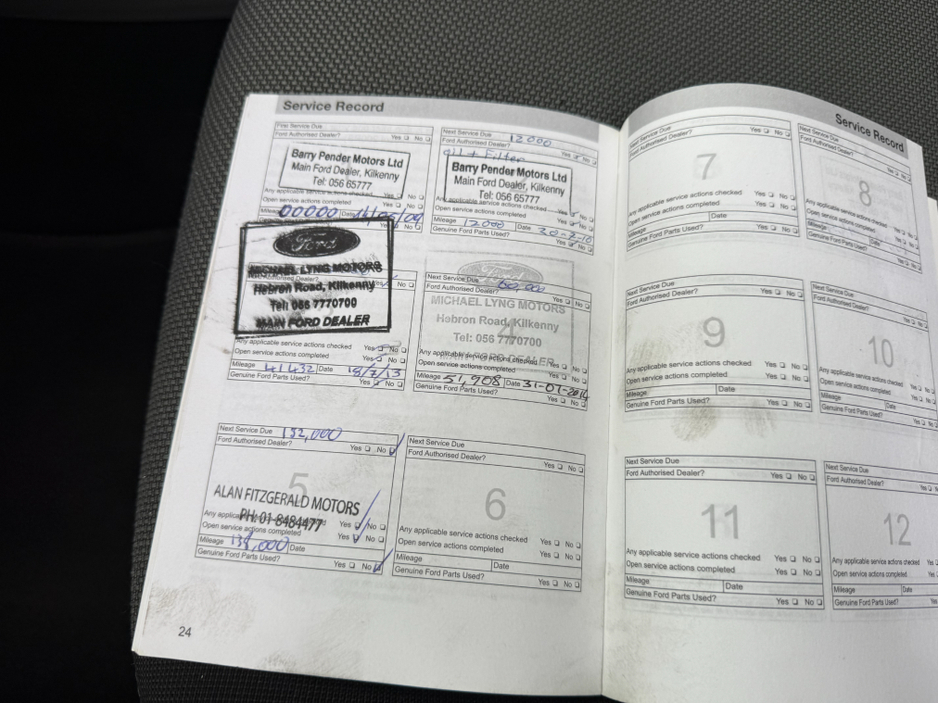 Service Record
First Service Due
Ford Authorised Dealer? Yes No
Barry Pender Motors Ltd
Main Ford Dealer, Kilkenny
Tel: 056 65777
Any applicable service actions checked Yes No
Open service actions completed Yes No
Mileage 00000 Date
Next Service Due 12000
Ford Authorised Dealer? Yes No
oil + Filter
Barry Pender Motors Ltd
Main Ford Dealer, Kilkenny
Tel: 056 65777
Any applicable service actions checked
Open service actions completed Yes No
Mileage 12000 Date 30-7-10
Genuine Ford Parts Used? Yes No
Ford
MICHAEL LYNG MOTORS
Hebron Road, Kilkenny
Tel: 056 7770700
MAIN FORD DEALER
Any applicable service actions checked Yes No
Open service actions completed Yes No
Mileage 41432 Date 18/7/13
Genuine Ford Parts Used? Yes No
Ford
Next Service Due
Ford Authorised Dealer? Yes No
MICHAEL LYNG MOTORS
Hebron Road, Kilkenny
4
Tel: 056 7770700
Any applicable service actions checked
Open service actions completed Yes No
Mileage 51,708 Date 31-07-2014
Genuine Ford Parts Used? Yes No
Next Service Due 152,000
Ford Authorised Dealer? Yes No
5
ALAN FITZGERALD MOTORS
PH: 01 8484477
Yes No
Open service actions completed Yes No
Mileage Date
Genuine Ford Parts Used? Yes No
Next Service Due
Ford Authorised Dealer? Yes No
6
Any applicable service actions checked Yes No
Open service actions completed Yes No
Mileage Date
Genuine Ford Parts Used? Yes No
24
Service Record
Next Service Due
Ford Authorised Dealer? Yes No
7
Any applicable service actions checked Yes No
Open service actions completed Yes No
Mileage Date
Genuine Ford Parts Used? Yes No
Next Service Due
Ford Authorised Dealer? Yes No
8
Any applicable service actions checked
Open service actions completed
Mileage Date
Genuine Ford Parts Used? Yes No
Next Service Due
Ford Authorised Dealer? Yes No
9
Any applicable service actions checked Yes No
Open service actions completed Yes No
Mileage Date
Genuine Ford Parts Used? Yes No
Next Service Due
Ford Authorised Dealer? Yes No
10
Any applicable service actions checked
Open service actions completed Yes
Mileage Date
Genuine Ford Parts Used? Yes No
Next Service Due
Ford Authorised Dealer? Yes No
11
Any applicable service actions checked Yes No
Open service actions completed Yes No
Mileage Date
Genuine Ford Parts Used? Yes No
Next Service Due
Ford Authorised Dealer? Yes
12
Any applicable service actions checked Yes
Open service actions completed Yes
Mileage Date
Genuine Ford Parts Used? Yes No